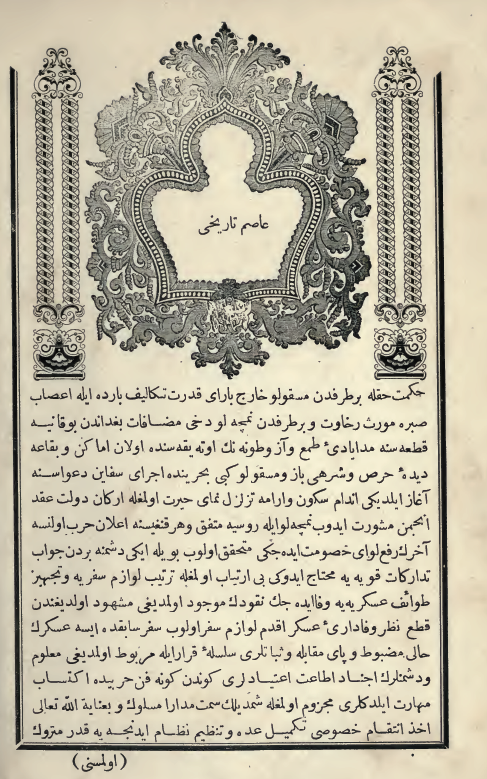 عاصم تاریخی
حکمت حقله برطرفدن مسقولو خارج یارای قدرت تکالیف بارده ایله اعصاب
صبره مورث رخاوت و برطرفدن نمچه لو دخی مضافات بغداندن بوقاتیه
قطعه سنه مد ایادئ طمع و آز وطونه نك اوته یقه سنده اولان اماکن و بقاعه
دیدۀ حرص و شرهی باز و مسقولو کبی بحریننده اجرای سفاین دعواسنه
آغاز ایلدیکی اندام سکون وارامه تزلزل نمای حیرت اولمغله ارکان دولت عقد
انجمن مشورت ایدوب نمچه لوایله روسیه متفق وهر قنغیسنه اعلان حرب اولنسه
آخرك رفع لوای خصومت ایده جکی متحقق اولوب بویله ایکی دشمنه بردن جواب
تدارکات قویه یه محتاج ایدوکی بی ارتیاب اولمغله ترتیب لوازم سفریه و تجهیز
طوائف عسکریه یه وفا ایده جك نقودك موجود اولمدیغی مشهود اولدیغندن
قطع نظر وفادارئ عسکر اقدم لوازم سفر اولوب سفر سابقده ایسه عسکرك
حالی مضبوط و پای مقابله و ثباتلری سلسلۀ قرار ایله مربوط اولمدیغی معلوم
ودشمنلرك اجناد اطاعت اعتیادلری کوندن کونه فن حربیده اکتساب
مهارت ایلدکلری مجزوم اولمغله شمدیلك سمت مدارا مسلوك و بعنایة الله تعالی
اخذ انتقام خصوصی تکمیل عده و تنظیم نظام ایدنجه یه قدر متروك
(اولمسنی)